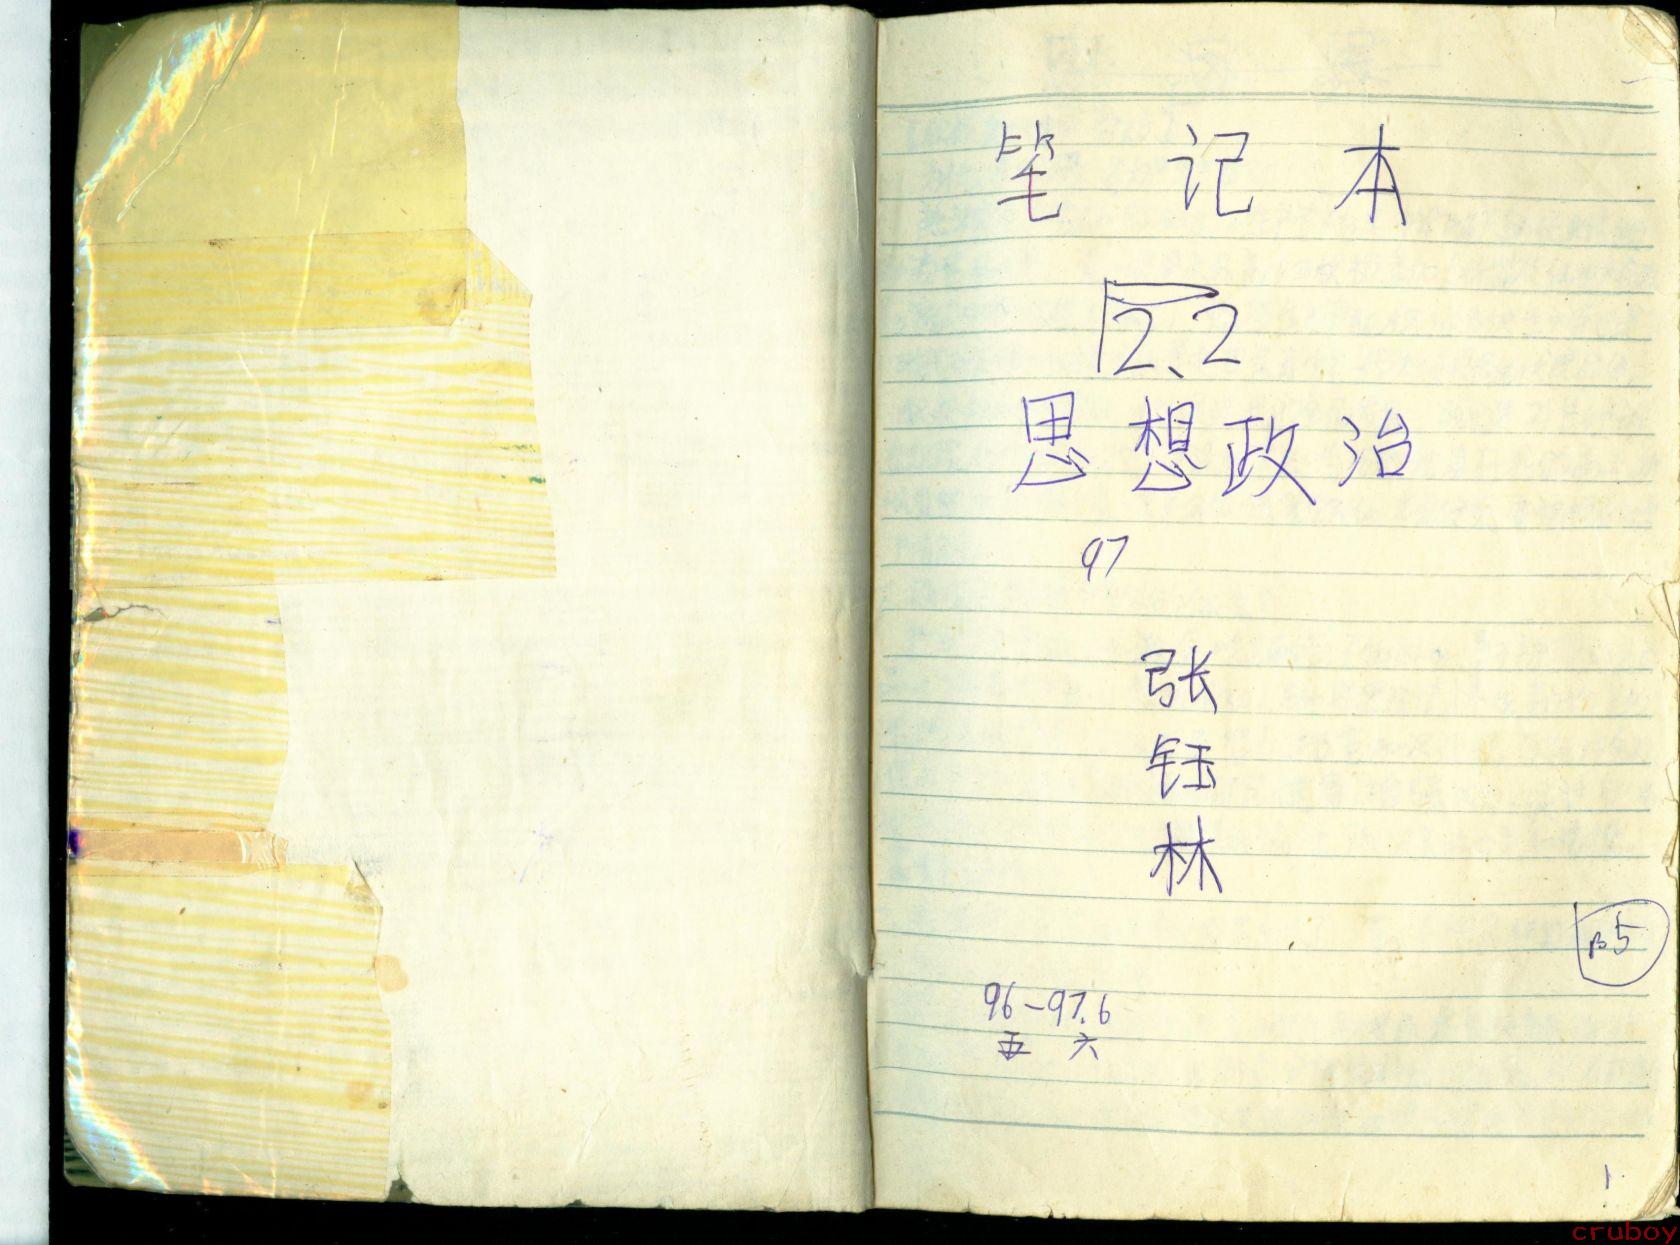 笔记本
12.2
思想政治
97
张
钰
林
P5
96-97.6
五 六
1
cruboy